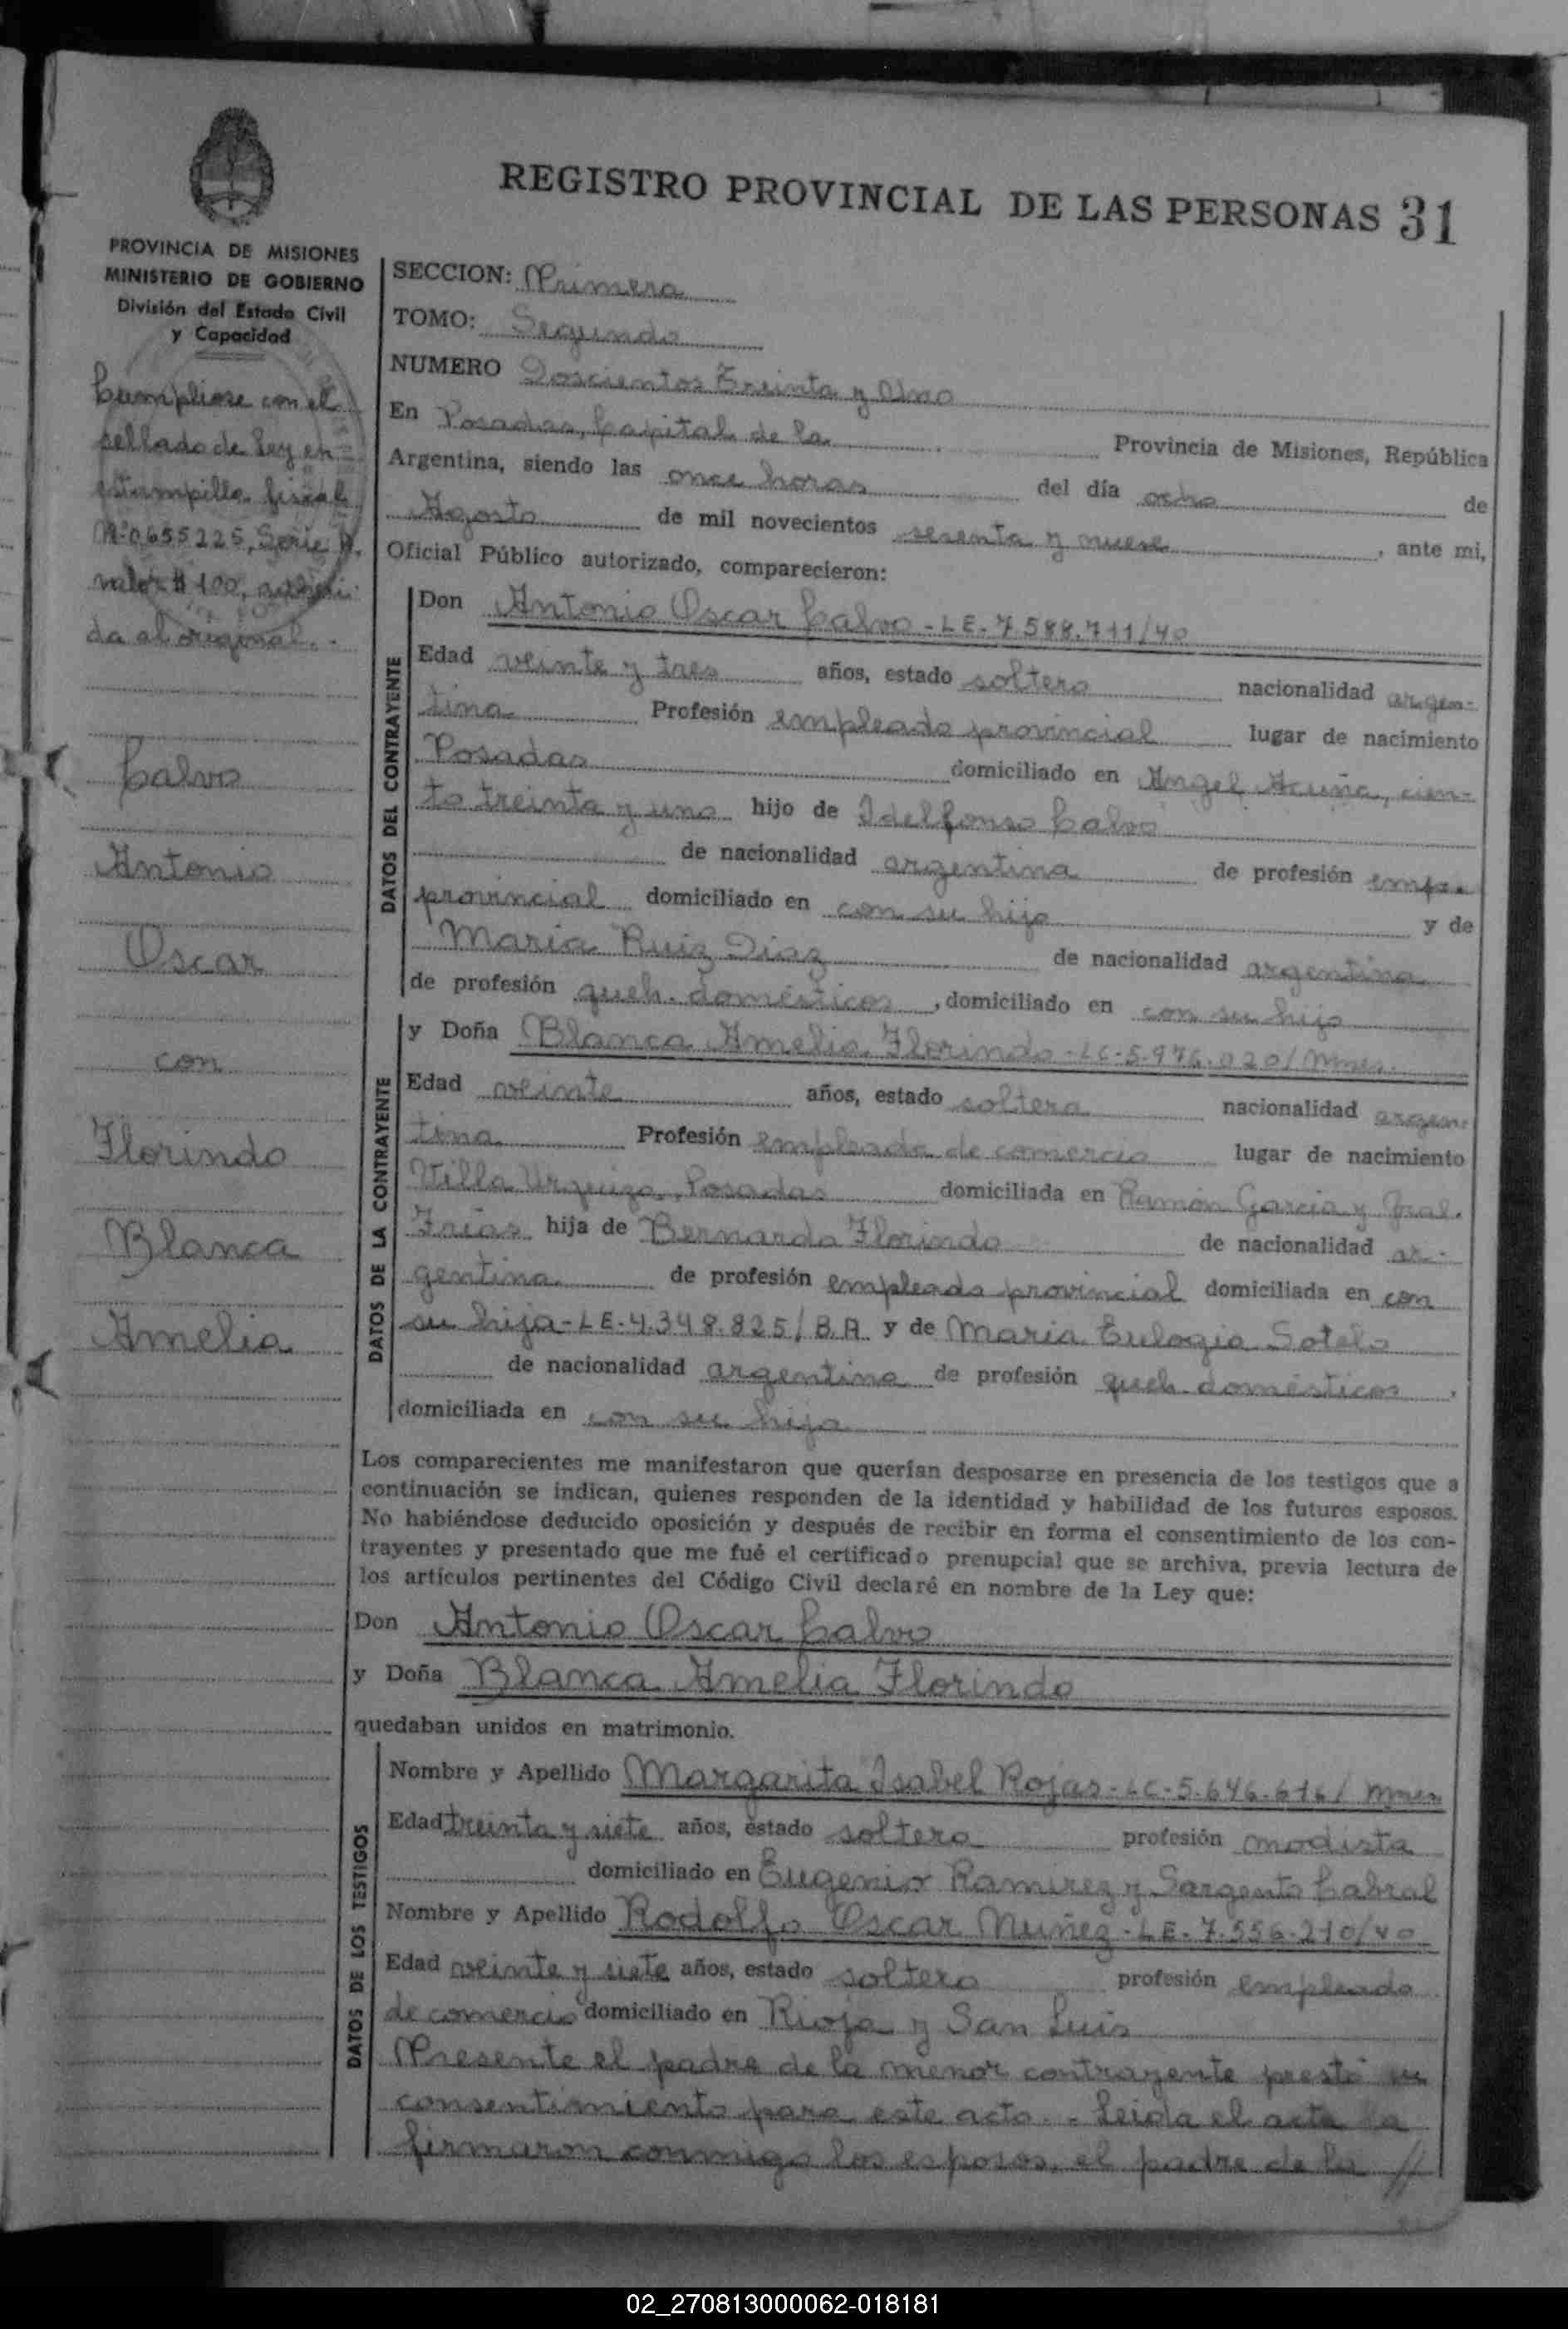 REGISTRO PROVINCIAL DE LAS PERSONAS 31
PROVINCIA DE MISIONES
MINISTERIO DE GOBIERNO
División del Estado Civil
y Capacidad
Cumpliose con el
sellado de ley en
estampilla fiscal
Nº 0655225, Serie A.
valor $ 100, adheri
da al original. -
Calvo
Antonio
Oscar
con
Florindo
Blanca
Amelia
SECCION: Primera
TOMO: Segundo
NUMERO Doscientos Treinta y Uno
En Posadas, Capital de la Provincia de Misiones, República
Argentina, siendo las once horas del día ocho de
Agosto de mil novecientos sesenta y nueve, ante mi,
Oficial Público autorizado, comparecieron:
DATOS DEL CONTRAYENTE
Don Antonio Oscar Calvo - LE. 7.588.711/40
Edad veinte y tres años, estado soltero nacionalidad argen-
tina Profesión empleado provincial lugar de nacimiento
Posadas domiciliado en Angel Acuña, cien-
to treinta y uno hijo de Idelfonso Calvo
de nacionalidad argentina de profesión emp.
provincial domiciliado en con su hijo y de
Maria Ruiz Diaz de nacionalidad argentina
de profesión queh. domésticos, domiciliado en con su hijo
DATOS DE LA CONTRAYENTE
y Doña Blanca Amelia Florindo - LC-5.976.020/Mnes.
Edad veinte años, estado soltera nacionalidad argen-
tina Profesión empleada de comercio lugar de nacimiento
Villa Urquiza, Posadas domiciliada en Ramón García y Gral.
Frías hija de Bernardo Florindo de nacionalidad ar-
gentina de profesión empleado provincial domiciliada en con
su hija - LE. 4.348.825/B.A. y de Maria Eulogia Sotelo
de nacionalidad argentina de profesión queh. domésticos,
domiciliada en con su hija
Los comparecientes me manifestaron que querían desposarse en presencia de los testigos que a
continuación se indican, quienes responden de la identidad y habilidad de los futuros esposos.
No habiéndose deducido oposición y después de recibir en forma el consentimiento de los con-
trayentes y presentado que me fué el certificado prenupcial que se archiva, previa lectura de
los artículos pertinentes del Código Civil declaré en nombre de la Ley que:
Don Antonio Oscar Calvo
y Doña Blanca Amelia Florindo
quedaban unidos en matrimonio.
DATOS DE LOS TESTIGOS
Nombre y Apellido Margarita Isabel Rojas - LC-5.646.616/Mnes
Edad treinta y siete años, estado soltera profesión modista
domiciliado en Eugenio Ramirez y Sargento Cabral
Nombre y Apellido Rodolfo Oscar Nuñez - LE. 7.556.210/40
Edad veinte y siete años, estado soltero profesión empleado
de comercio domiciliado en Rioja y San Luis
Presente el padre de la menor contrayente prestó su
consentimiento para este acto. - Leida el acta la
firmaron conmigo los esposos, el padre de la //
02_270813000062-018181